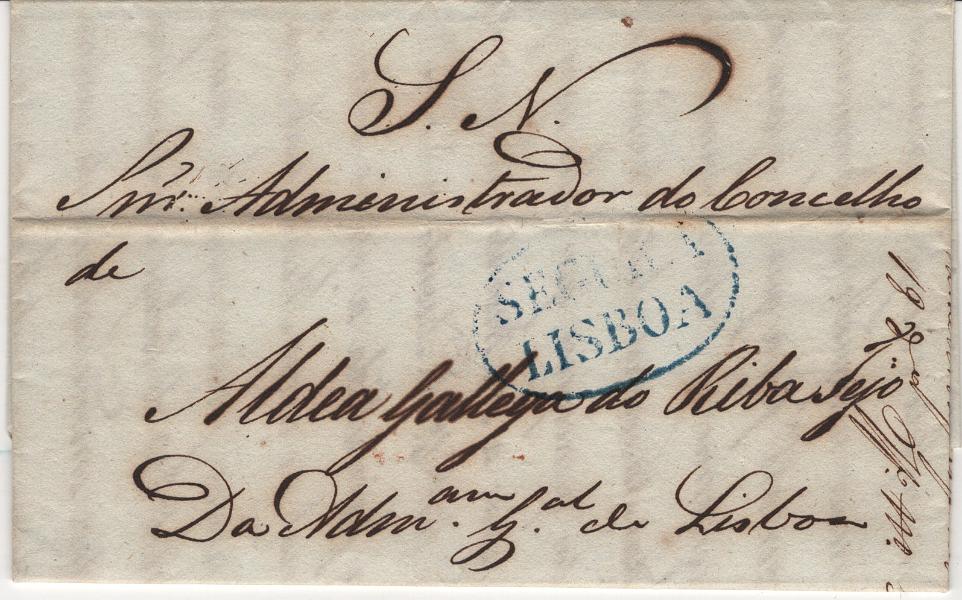 S. N.
Snr. Administrador do Concelho
de
SEGURA
LISBOA
Aldea Gallega do Riba Tejo
Da Adm.am G.al de Lisboa
19